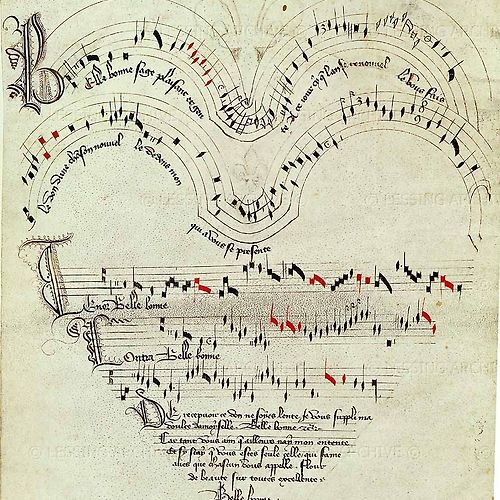 Belle bonne sage plaisant et gen
te A ce jour q̃ lan se renouvel
Vous fais
le don dune chãson nouvel
le Dedens mon
qui a vous se presente
Tenor Belle bonne
Contra Belle bonne
De recepvoir ce don ne soyes lente Je vous suppli ma
doulce damoyselle Belle bonne
Car tant vous aim qailleurs nay mon entente
Et se scay q̃ vous estes seule celle qui fame
aves que chascun vous appelle Flour
de beaute sur toutes excellente
Belle bonne